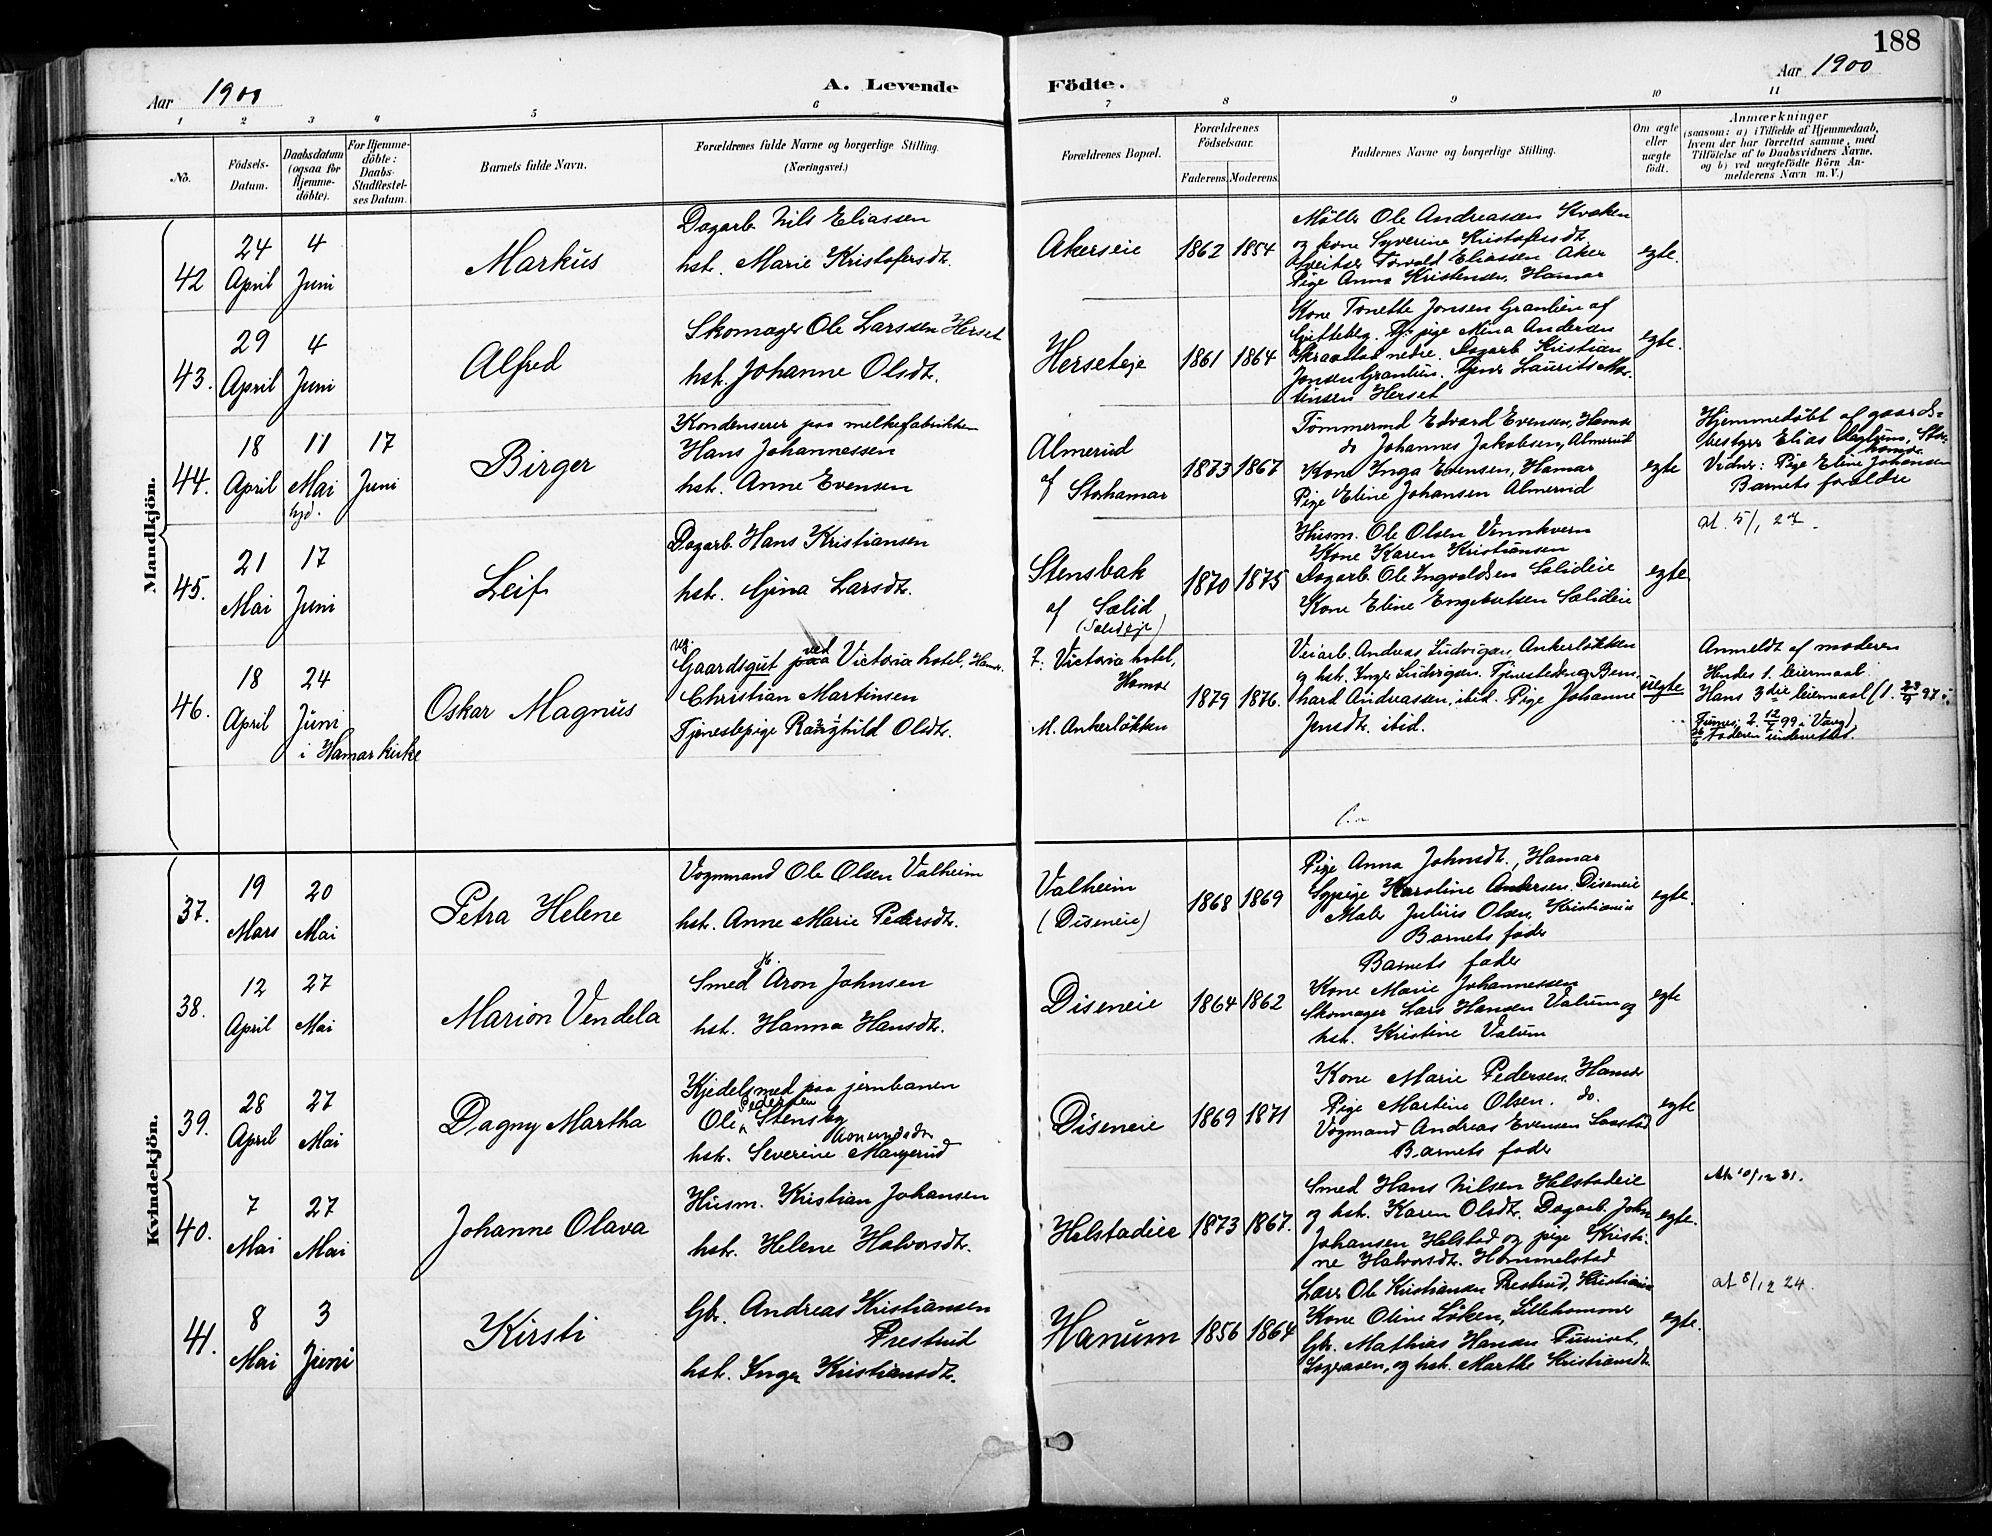 188
Aar 1900
A. Levende
Födte.
Aar 1900
1 2 3 4 5 6 7 8 9 10 11
No.
Födsels-Datum.
Daabsdatum (ogsaa for Hjemme-döbte).
For Hjemme-döbte: Daabs-Stadfæstel-ses Datum.
Barnets fulde Navn.
Forældrenes fulde Navne og borgerlige Stilling. (Næringsvei.)
Forældrenes Bopæl.
Forældrenes Födselsaar.
Faderens. Moderens.
Faddernes Navne og borgerlige Stilling.
Om ægte eller uægte födt.
Anmærkninger
(saasom: a) i Tilfælde af Hjemmedaab,
hvem der har forrettet samme, med
Tilföielse af to Daabsvidners Navne,
og b) ved uægtefödte Börn An-
melderens Navn m. V.)
Mandkjön.
42
24 April
4 Juni
Markus
Dagarb. Nils Eliassen
hst. Marie Kristofersdt.
Akerseie
1862 1854
Møller Ole Andreassen Kvaken
og kone Syverine Kristofersdt.
Sveitser Torvald Eliassen Aker
Pige Anna Kristensen, Hamar
egte.
43.
29 April
4 Juni
Alfred
Skomager Ole Larssen Herset
hst. Johanne Olsdt.
Herseteje
1861 1864
Kone Tonette Jonsen Granlien af
pige Mina Andersen
Skraastad nedre. Dagarb. Kristian
Jonsen Granlien. Laurits Mar-
tinsen Herset
egte.
44.
18 April
11 Mai hjd.
17 Juni
Birger
Kondenserer paa melkefabrikken
Hans Johannessen
hst. Anne Evensen
Almerud
af Storhamar
1873 1867
Tømmermd Edvard Evensen, Hamar
do Johannes Jakobsen, Almerud
Kone Inga Evensen, Hamar
Pige Eline Johansen Almerud
egte
Hjemmedøbt af gaards-
bestyrer Elias Stor-
hamar.
Vidner: Pige Eline Johansen
Barnets forældre
45.
21 Mai
17 Juni
Leif
Dagarb. Hans Kristiansen
hst. Gina Larsdt.
Stensbak
af Sælid
(Sælideje)
1870 1875
Husm. Ole Olsen Vennkvern
Kone Karen Kristiansen
Dagarb. Ole Ingvaldsen Sælideie
Kone Eline Engebretsen Sælideie
egte
at. 5/1 27.
46.
18 April
24 Juni
i Hamar kirke
Oskar Magnus
Ug.
Gaardsgut ved Victoria hotel, Hamar.
Christian Martinsen
Tjenestepige Ranghild Olsdt.
F: Victoria hotel,
Hamar
M. Ankerløkken
1879 1876.
Veiarb. Andreas Ludvigsen, Ankerløkken
og hst. Inger Ludvigsen. Tjenestedreng Bern-
hard Andreassen, ibid. Pige Johanne
Jensdt. ibid.
uegte
Anmeldt af moderen
Hendes 1. leiermaal
Hans 3die leiermaal (1. 97 i
Furnes, 2. 12/7 99 i Vang).
Faderen underrettet.
Kvindekjön.
37.
19 Mars
20 Mai
Petra Helene
Vognmand Ole Olsen Valheim
hst. Anne Marie Pedersdt.
Valheim
(Diseneie)
1868 1869
Pige Anna Johnsdt., Hamar
Sypige Karoline Andersen, Diseneie
Maler Julius Olsen, Kristiania
Barnets fader
egte.
38.
12 April
27 Mai
Marion Vendela
Smed Aron Johnsen
hst. Hanna Hansdt.
Diseneie
1864 1862
Barnets fader
Kone Marie Johannessen
Skomager Lars Hansen Valum og
hst. Kristine Valum
egte
39.
28 April
27 Mai
Dagny Martha
Kjedelsmed paa jernbanen
Ole Pedersen Stensby
hst. Severine Amundsdtr Mangerud
Diseneie
1869 1871
Kone Marie Pedersen, Hamar
Pige Martine Olsen. do.
Vogmand Andreas Evensen Saastad
Barnets fader
egte
40.
7 Mai
27 Mai
Johanne Olava
Husm. Kristian Johansen
hst. Helene Halvorsdt.
Helstadeie
1873 1867.
Smed Hans Nilsen Helstadeie
og hst. Karen Olsdt. Dagarb. John
Johansen Helstad og pige Kristi-
ne Halvorsdt. Hommelstad
egte.
At. 10/12 31.
41.
8 Mai
3 Juni
Kirsti
Gbr. Andreas Kristiansen
Prestrud
hst. Inger Kristiansdt.
Hanum
1856 1864
Lærer Ole Kristiansen Prestrud, Kristiania
Kone Oline Løken, Lillehammer
Gbr. Mathias Hansen
og hst. Marthe Kristiansdt.
egte.
at 8/12 24.